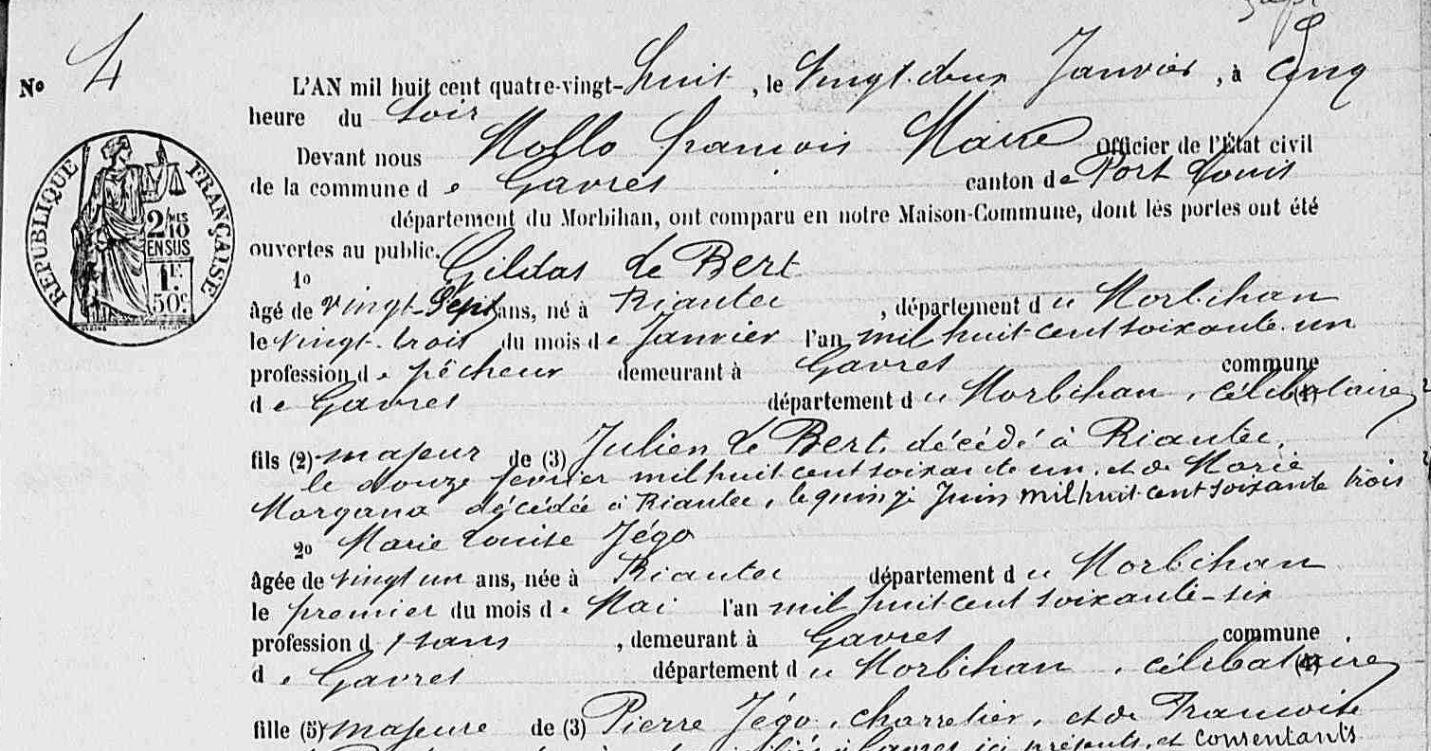 Nº 4
L'AN mil huit cent quatre-vingt-huit, le Vingt-deux Janvier, à Cinq
heure du Soir
Devant nous Mollo François Maire Officier de l'État civil
de la commune de Gavres canton de Port Louis
département du Morbihan, ont comparu en notre Maison-Commune, dont les portes ont été
ouvertes au public.
RÉPUBLIQUE FRANÇAISE
2/10 EN SUS
1F. 50c.
1º Gildas Le Bert
âgé de vingt-Sept ans, né à Riantec, département du Morbihan
le vingt-trois du mois de Janvier l'an mil huit cent soixante un
profession de pêcheur demeurant à Gavres commune
de Gavres département du Morbihan, célibataire
fils (2) majeur de (3) Julien Le Bert, décédé à Riantec,
le douze février mil huit cent soixante un, et de Marie
Morgana décédée à Riantec, le quinze Juin mil huit cent soixante trois
2º Marie Louise Jégo
âgée de vingt un ans, née à Riantec département du Morbihan
le premier du mois de Mai l'an mil huit cent soixante-six
profession d sans, demeurant à Gavres commune
de Gavres département du Morbihan, célibataire (4)
fille (5) majeure de (3) Pierre Jégo, charretier, et de Françoise
à Gavres ici présents, et consentants